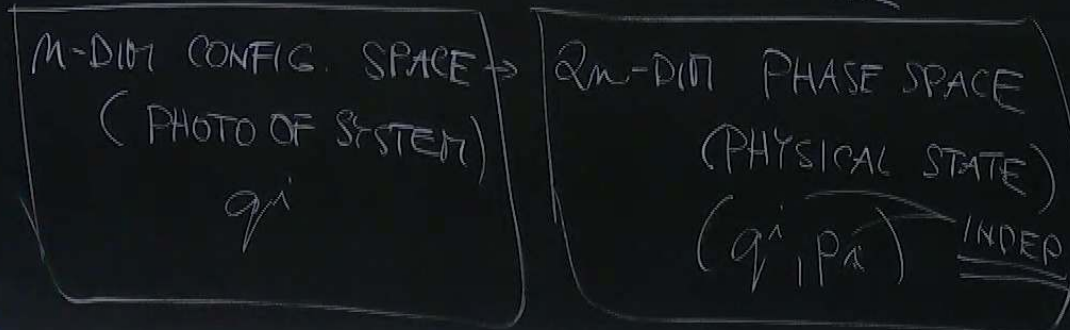 n-DIM CONFIG. SPACE →
(PHOTO OF SYSTEM)
qⁱ
2n-DIM PHASE SPACE
(PHYSICAL STATE)
(qⁱ, pᵢ) INDEP